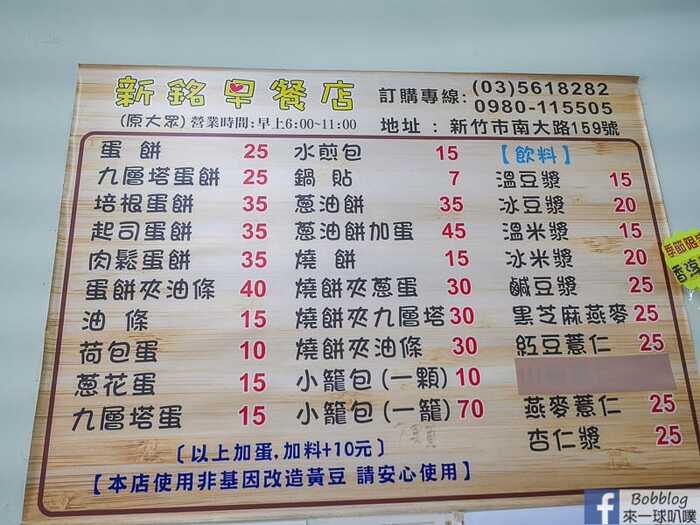 新銘早餐店
訂購專線: (03)5618282
0980-115505
(原大眾) 營業時間:早上6:00~11:00
地址:新竹市南大路159號
蛋餅 25
九層塔蛋餅 25
培根蛋餅 35
起司蛋餅 35
肉鬆蛋餅 35
蛋餅夾油條 40
油條 15
荷包蛋 10
蔥花蛋 15
九層塔蛋 15
水煎包 15
鍋貼 7
蔥油餅 35
蔥油餅加蛋 45
燒餅 15
燒餅夾蔥蛋 30
燒餅夾九層塔 30
燒餅夾油條 30
小籠包(一顆) 10
小籠包(一籠) 70
【飲料】
溫豆漿 15
冰豆漿 20
溫米漿 15
冰米漿 20
鹹豆漿 25
黑芝麻燕麥 25
紅豆薏仁 25
燕麥薏仁 25
杏仁漿 25
〔以上加蛋,加料+10元〕
【本店使用非基因改造黃豆 請安心使用】
季節限
Bobblog
來一球叭噗